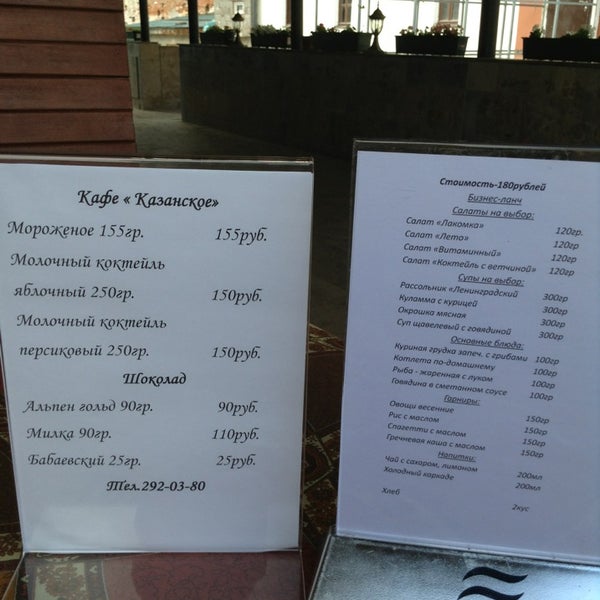 Кафе « Казанское»
Мороженое 155гр. 155руб.
Молочный коктейль
яблочный 250гр. 150руб.
Молочный коктейль
персиковый 250гр. 150руб.
Шоколад
Альпен гольд 90гр. 90руб.
Милка 90гр. 110руб.
Бабаевский 25гр. 25руб.
Тел.292-03-80
Стоимость-180рублей
Бизнес-ланч
Салаты на выбор:
Салат «Лакомка» 120гр.
Салат «Лето» 120гр
Салат «Витаминный» 120гр
Салат «Коктейль с ветчиной» 120гр
Супы на выбор:
Рассольник «Ленинградский 300гр
Куламма с курицей 300гр
Окрашка мясная 300гр
Суп щавелевый с говядиной 300гр
Основные блюда:
Куриная грудка запеч. с грибами 100гр
Котлета по-домашнему 100гр
Рыба - жаренная с луком 100гр
Говядина в сметанном соусе 100гр
Гарниры:
Овощи весенние 150гр
Рис с маслом 150гр
Спагетти с маслом 150гр
Гречневая каша с маслом 150гр
Напитки:
Чай с сахаром, лимоном 200мл
Холодный каркаде 200мл
Хлеб 2кус